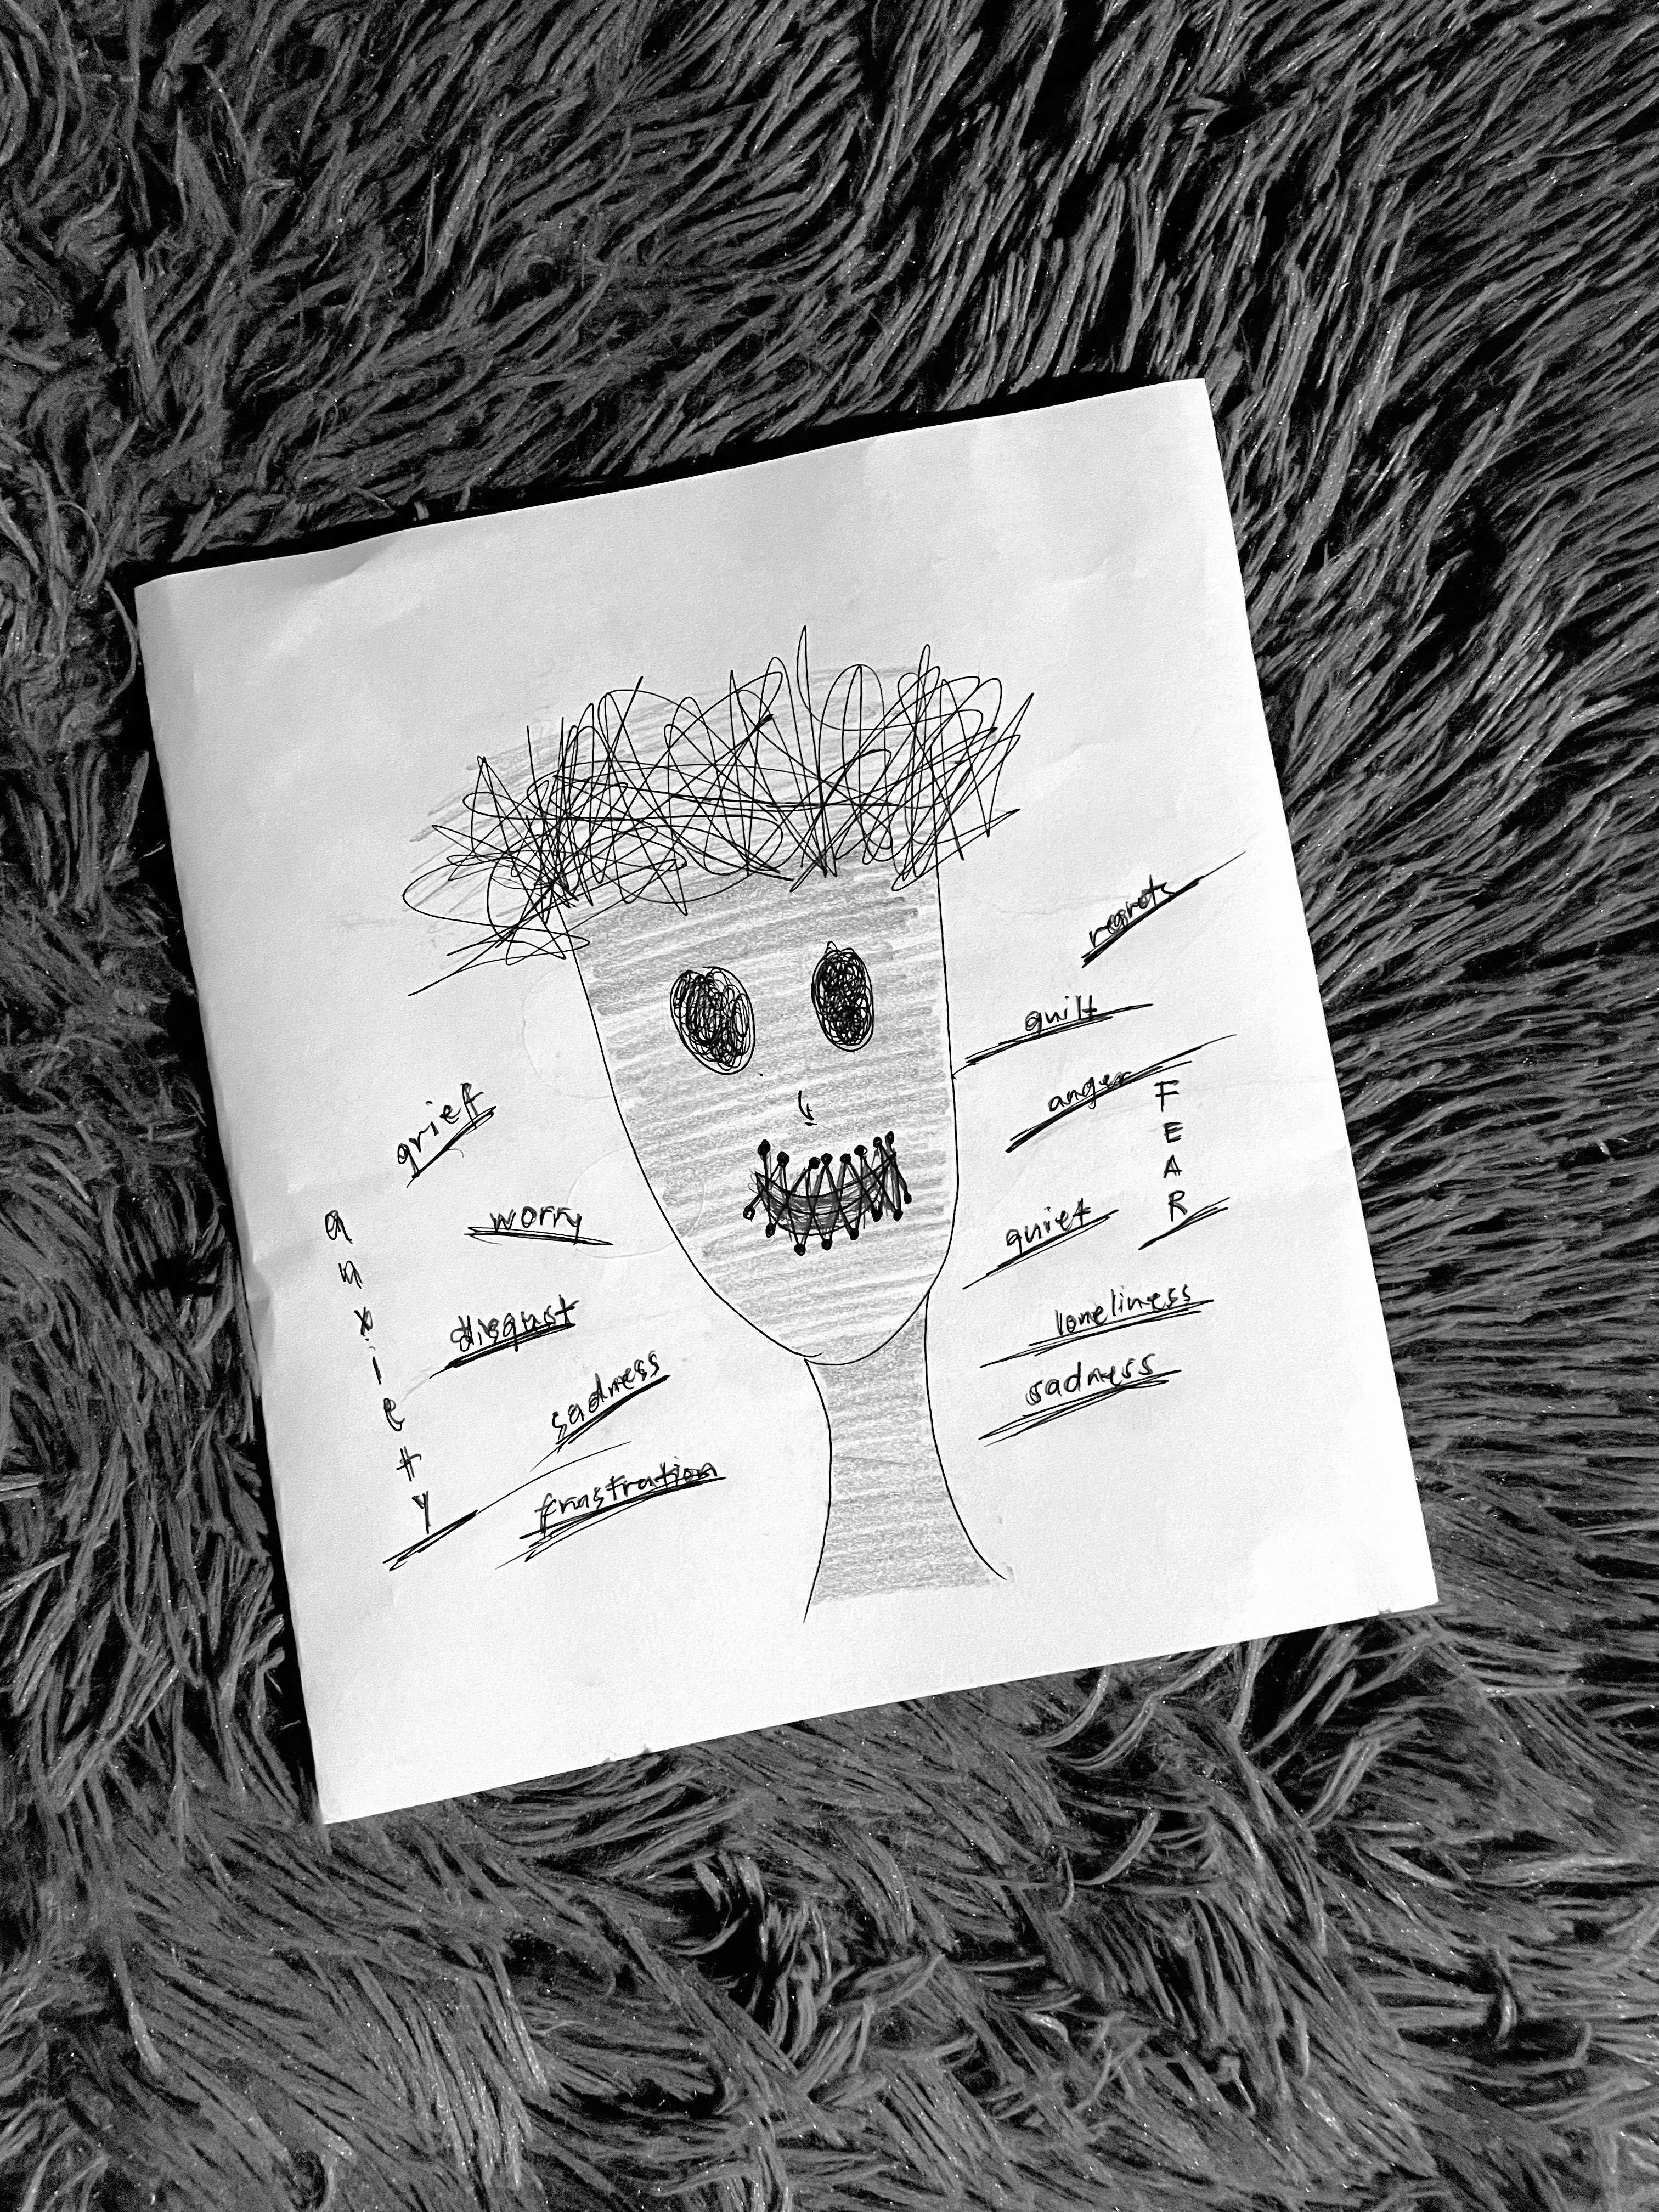 grief
worry
anxiety
disgust
sadness
frustration
regrets
guilt
anger
FEAR
quiet
loneliness
sadness